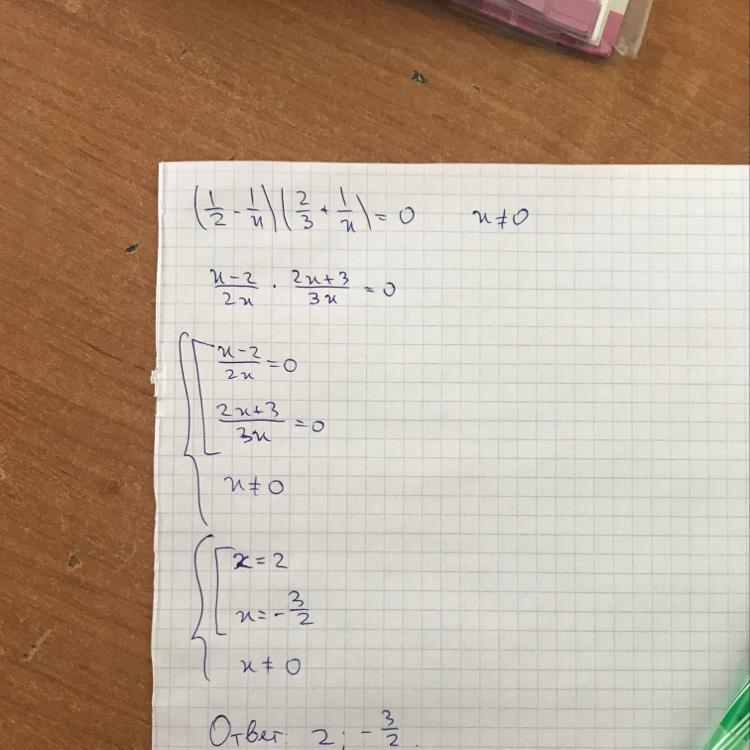 (1/2 - 1/x)(2/3 + 1/x) = 0 x ≠ 0
x-2/2x · 2x+3/3x = 0
x-2/2x = 0
2x+3/3x = 0
x ≠ 0
x = 2
x = -3/2
x ≠ 0
Ответ: 2; -3/2.